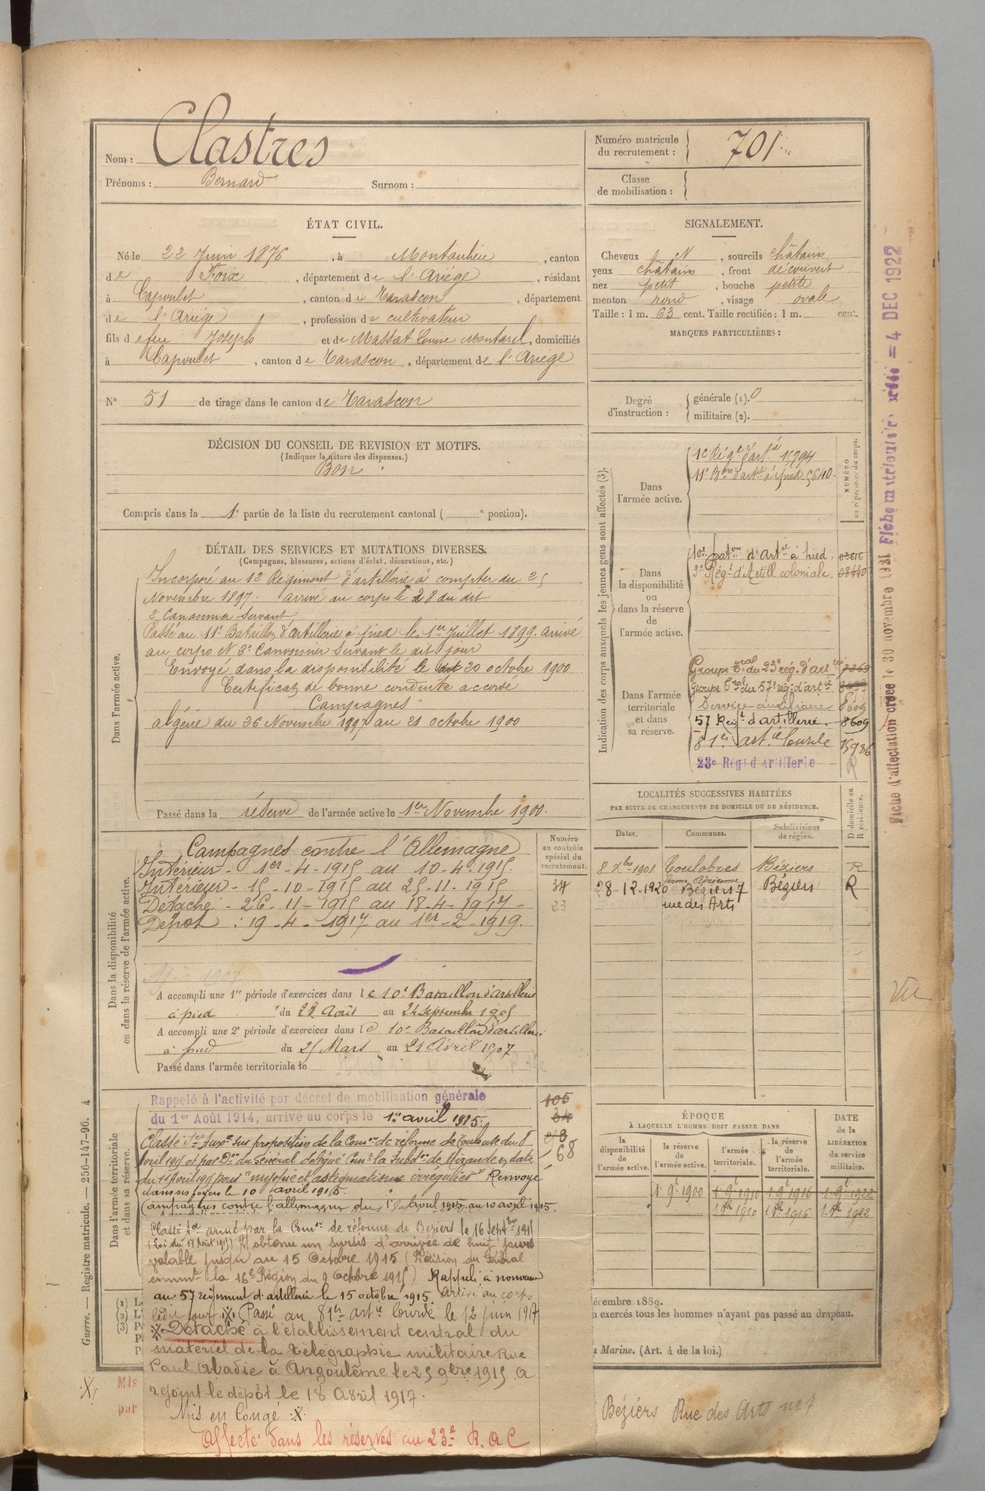 Nom : Clastres
Prénoms : Bernard Surnom :
Numéro matricule du recrutement : 701
Classe de mobilisation :
ÉTAT CIVIL.
Né le 22 Juin 1876, à Montoulieu, canton
de Foix, département de l'Ariège, résidant
à Capoulet, canton de Tarascon, département
de l'Ariège, profession de cultivateur
fils de feu Joseph et de Massat Louise Montard, domiciliés
à Capoulet, canton de Tarascon, département de l'Ariège
N° 51 de tirage dans le canton de Tarascon
SIGNALEMENT.
Cheveux N, sourcils châtains
yeux châtains, front découvert
nez petit, bouche petite
menton rond, visage ovale
Taille : 1 m. 63 cent. Taille rectifiée : 1 m. cent.
MARQUES PARTICULIÈRES :
Degré d'instruction : générale (1). 0
militaire (2).
DÉCISION DU CONSEIL DE REVISION ET MOTIFS.
(Indiquer la nature des dispenses.)
Bon
Compris dans la 1e partie de la liste du recrutement cantonal ( e portion).
DÉTAIL DES SERVICES ET MUTATIONS DIVERSES.
(Campagnes, blessures, actions d'éclat, décorations, etc.)
Dans l'armée active.
Incorporé au 12e Régiment d'artillerie à compter du 25
Novembre 1897. arrivé au corps le 28 du dit
2e Canonnier Servant
Passé au 11e Bataillon d'artillerie à pied le 1er Juillet 1899. arrivé
au corps et 2e Canonnier Servant le dit jour
Envoyé dans la disponibilité le 20 octobre 1900
Certificat de bonne conduite accordé
Campagnes
algérie du 26 Novembre 1897 au 21 octobre 1900
Passé dans la réserve de l'armée active le 1er Novembre 1900.
Indication des corps auxquels les jeunes gens sont affectés (3).
NUMÉRO au répertoire du corps.
Dans l'armée active.
12e Régt d'artie 15794
11e Bon d'artie à pied 5640
Dans la disponibilité ou dans la réserve de l'armée active.
10e bat.on d'Artie à pied.
3e Régt d'Artill coloniale
Dans l'armée territoriale et dans sa réserve.
Groupe tral du 23e rég. d'artie
Groupe tral du 57e rég. d'artie
Service auxiliaire 8609
57 Regt d'artillerie. 8609
81e art.ie Lourde 15986
23e Régt d'artillerie R
LOCALITÉS SUCCESSIVES HABITÉES
PAR SUITE DE CHANGEMENTS DE DOMICILE OU DE RÉSIDENCE.
Dates. Communes. Subdivisions de région. D domicile ou R résidence.
8 Xbre 1901 Coulobres Béziers R
28-12-1920 Béziers 7 rue des Arts Béziers R
Dans la disponibilité ou dans la réserve de l'armée active.
Numéro au contrôle spécial du recrutement.
34
23
Campagnes contre l'Allemagne
Intérieur - 1er - 4 - 1915 au 10 - 4 - 1915
Intérieur - 15 - 10 - 1915 au 25 - 11 - 1915
Détaché - 26 - 11 - 1915 au 18 - 4 - 1917 -
Dépot : 19 - 4 - 1917 au 1er - 2 - 1919.
A accompli une 1re période d'exercices dans le 10e Bataillon d'artillerie
à pied du 28 Août au 24 septembre 1905
A accompli une 2e période d'exercices dans le 10e Bataillon d'artillerie
à pied du 25 Mars au 21 Avril 1907
Passé dans l'armée territoriale le
Dans l'armée territoriale et dans sa réserve.
Rappelé à l'activité par décret de mobilisation générale
du 1er Août 1914, arrivé au corps le 1er avril 1915.
68
Classé Sce Auxre sur proposition de la Comon de réforme de Toulouse du 8
avril 1915 et par Don du Général délégué Cant la Subdon de Mirande en date
du 1er avril 1915 pour "myopie et astigmatisme irréguliers" Renvoyé
dans ses foyers le 10 avril 1915
Campagne contre l'allemagne du 1er avril 1915 au 10 avril 1915.
Classé sce armé par la Comon de réforme de Béziers le 16 septbre 1915
(Loi du 17 Août 1915) A obtenu un sursis d'arrivée de huit jours
valable jusqu'au 15 Octobre 1915 (Décision du Général
commt la 16e Région du 9 Octobre 1915) Rappelé à nouveau
au 57 régiment d'artillerie le 15 octobre 1915 arrivé au corps
ledit jour Passé au 81e artie Lourde le 12 juin 1917
Détaché à l'établissement central du
matériel de la télégraphie militaire Rue
Paul Abadie à Angoulême le 25 9bre 1915 A
rejoint le dépôt le 18 Avril 1917.
Mis en Congé X
Affecté dans les réserves au 23e R.A.C
ÉPOQUE
À LAQUELLE L'HOMME DOIT PASSER DANS
la disponibilité de l'armée active. la réserve de l'armée active. l'armée territoriale. la réserve de l'armée territoriale.
DATE de la LIBÉRATION du service militaire.
1 9e 1900 1 9e 1910 1 9e 1916 1 9e 1922
1910 1916 1922
décembre 1889.
n exercés tous les hommes n'ayant pas passé au drapeau.
a Marine. (Art. 4 de la loi.)
Béziers Rue des Arts no 7
Guerre. — Registre matricule. — 256-147-96.
Mis
par
Fiche d'affectation créée le 30 novembre 1921 Fiche matriculaire créée = 4 DEC 1922
Vu